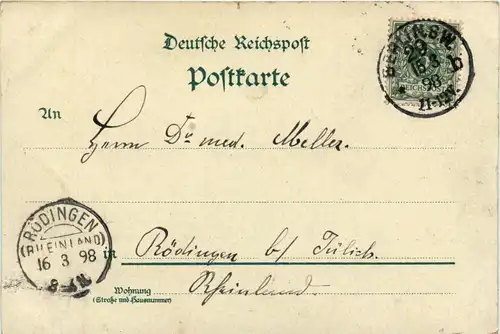 Deutsche Reichspost
Postkarte
BERLIN S.W.
15 3
98
11-12N.
An
Herrn Dr med. Meller.
RÖDINGEN
(RHEINLAND)
16 3 98
8-9 N
in Rödingen b/ Jülich.
Rheinland.
Wohnung
(Straße und Hausnummer)